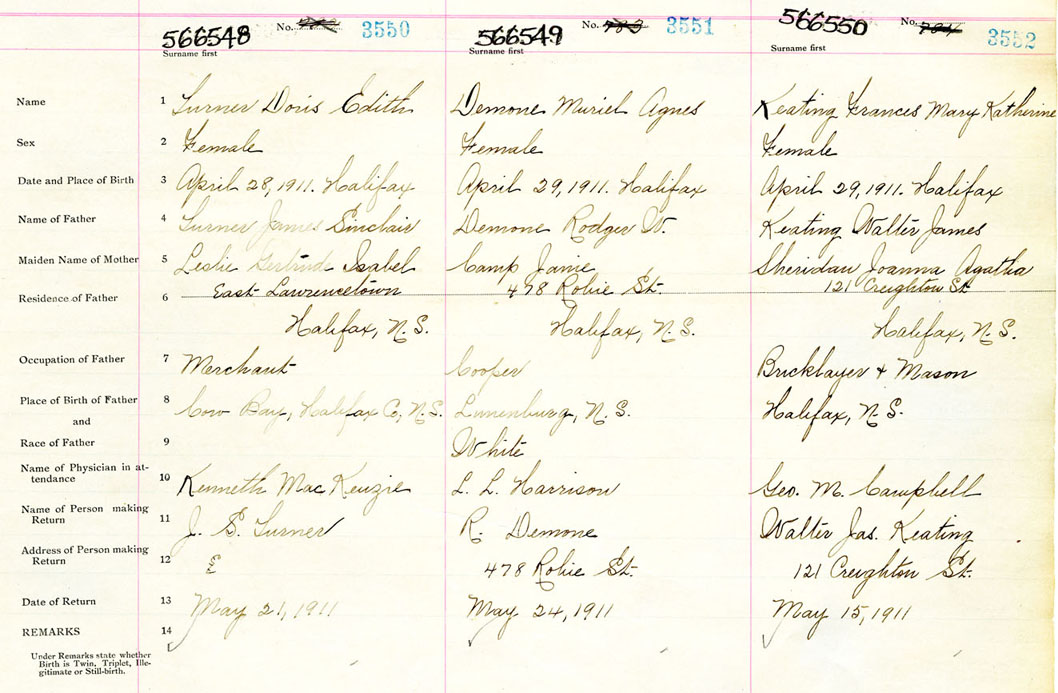 566548 No. 3550 566549 No. 783 3551 566550 No. 784 3552
Surname first Surname first Surname first
Name 1 Turner Doris Edith Demone Muriel Agnes Keating Frances Mary Katherine
Sex 2 Female Female Female
Date and Place of Birth 3 April 28, 1911. Halifax April 29, 1911. Halifax April 29, 1911. Halifax
Name of Father 4 Turner James Sinclair Demone Rodger W. Keating Walter James
Maiden Name of Mother 5 Leslie Gertrude Isabel Camp Janie Sheridan Joanna Agatha
Residence of Father 6 East Lawrencetown 478 Robie St. 121 Creighton St.
Halifax, N.S. Halifax, N.S. Halifax, N.S.
Occupation of Father 7 Merchant Cooper Bricklayer & Mason
Place of Birth of Father 8 Cow Bay, Halifax Co, N.S. Lunenburg, N.S. Halifax, N.S.
and
Race of Father 9 White
Name of Physician in at-
tendance 10 Kenneth MacKenzie L. L. Harrison Geo. M. Campbell
Name of Person making
Return 11 J. S. Turner R. Demone Walter Jas. Keating
Address of Person making
Return 12 478 Robie St. 121 Creighton St.
Date of Return 13 May 21, 1911 May 24, 1911 May 15, 1911
REMARKS 14
Under Remarks state whether
Birth is Twin, Triplet, Ille-
gitimate or Still-birth.